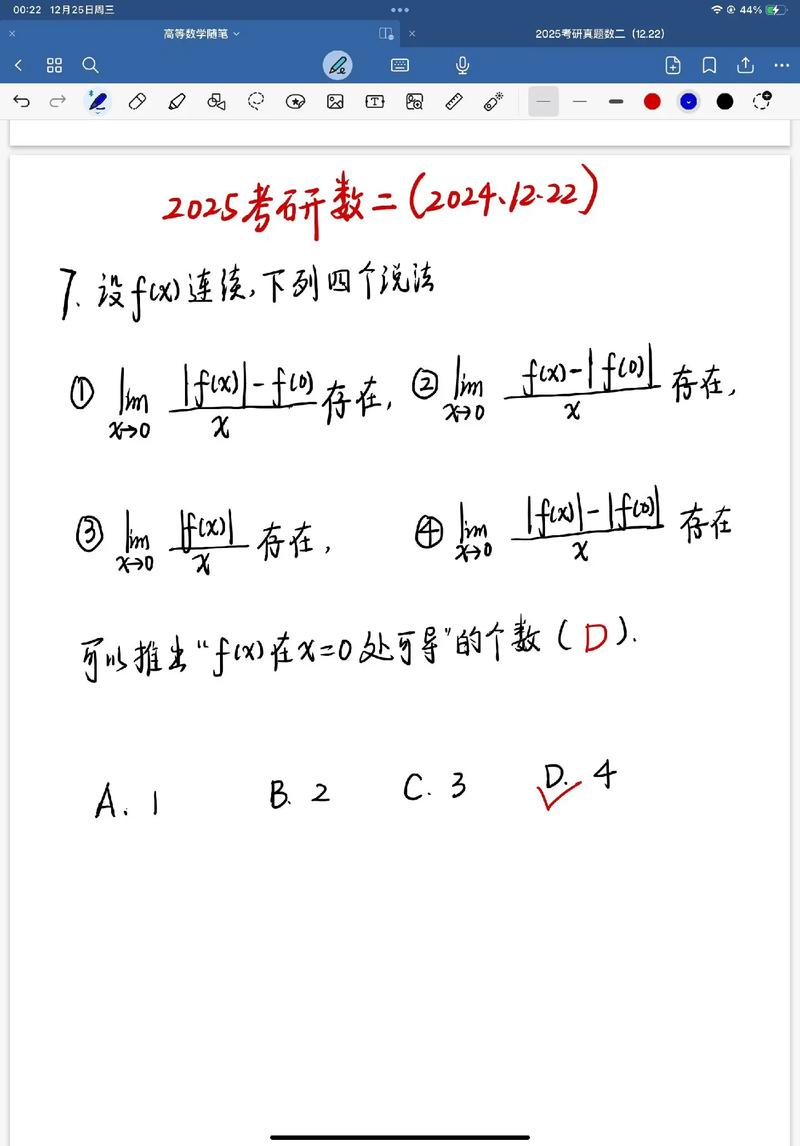 00:22 12月25日周三 44%
高等数学随笔 2025考研真题数二（12.22）
2025考研数二(2024.12.22)
7. 设f(x)连续,下列四个说法
① lim x→0 (|f(x)|-f(0))/x 存在, ② lim x→0 (f(x)-|f(0)|)/x 存在,
③ lim x→0 |f(x)|/x 存在, ④ lim x→0 (|f(x)|-|f(0)|)/x 存在
可以推出“f(x)在x=0处可导”的个数(D).
A. 1 B. 2 C. 3 D. 4